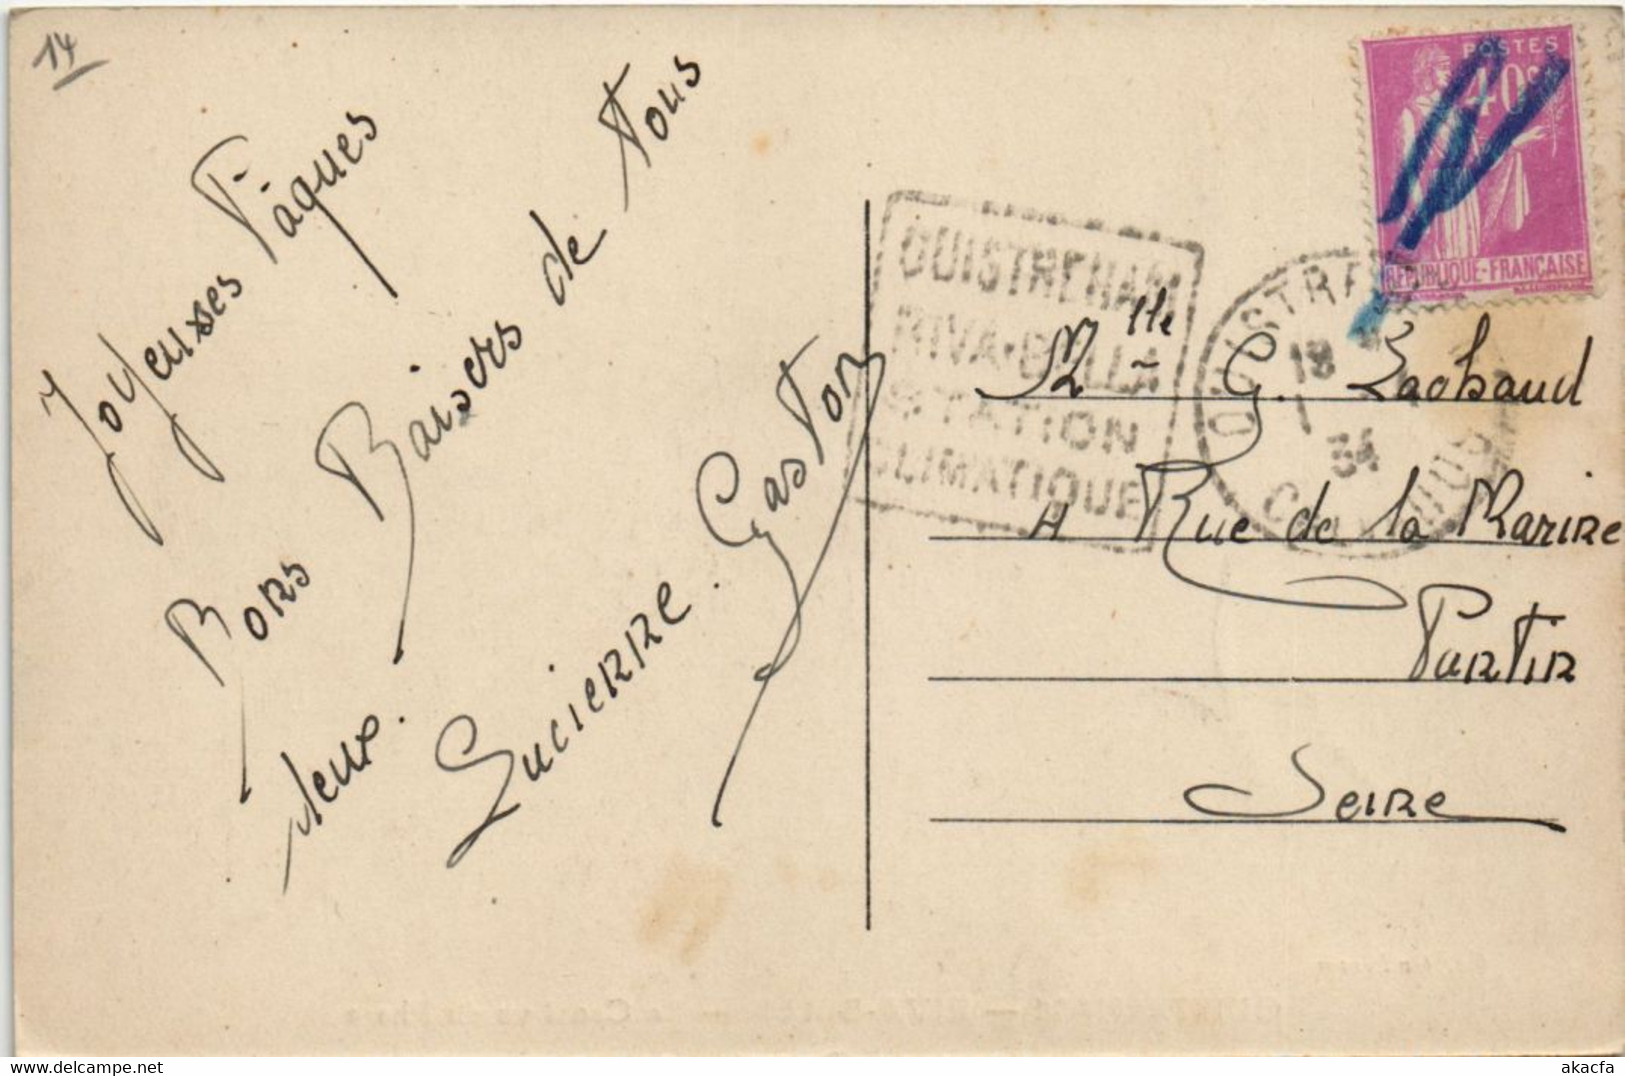 14
Joyeuses Pâques
Bons Baisers de Tous
deux.
Lucienne. Gaston
POSTES
40c
REPUBLIQUE-FRANÇAISE
OUISTREHAM
RIVA-BELLA
STATION
CLIMATIQUE
OUISTREHAM
18
34
CALVADOS
Mlle G. Lachaud
4 Rue de la Marine
Pantin
Seine
akacfa